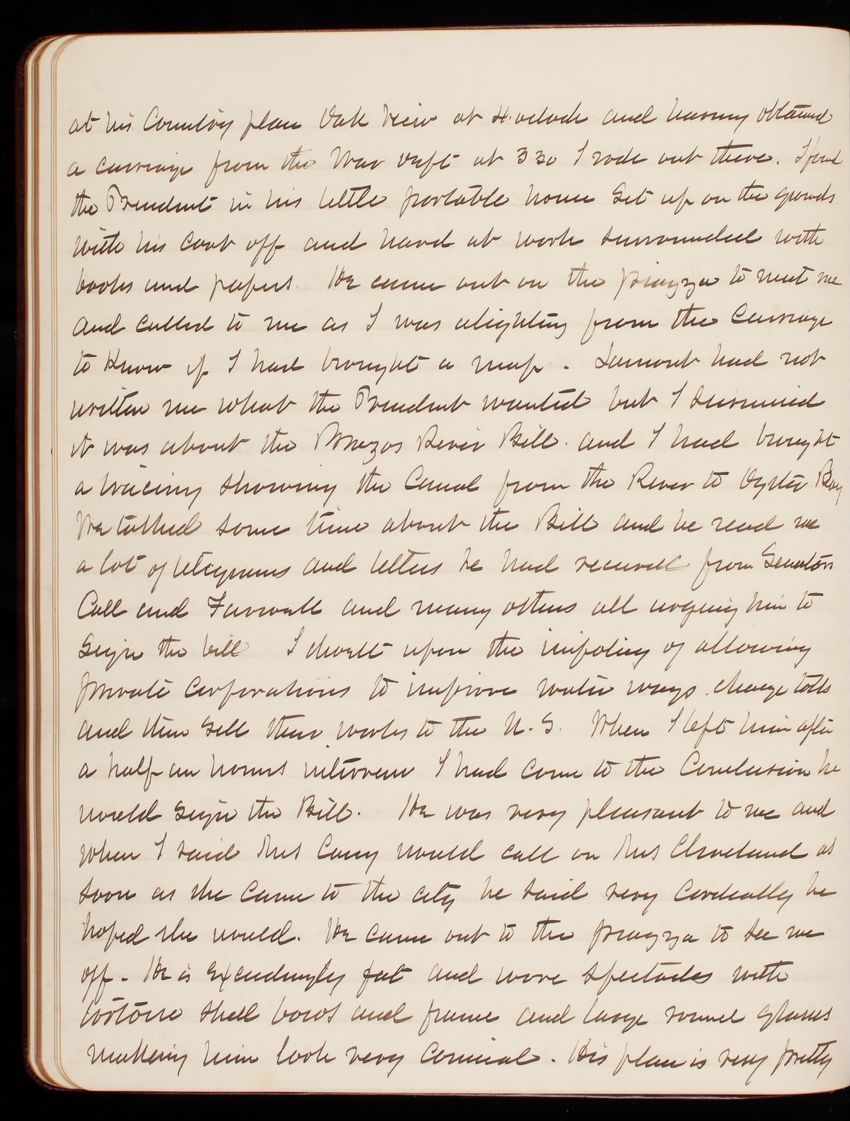 at his Country place Oak View at 4 oclock and having obtained
a carriage from the War Dept at 3 30 I rode out there. I found
the President in his little portable house set up on the grounds
with his coat off and hard at work surrounded with
books and papers. He came out on the piazza to meet me
and called to me as I was alighting from the carriage
to know if I had brought a map. Lamont had not
written me what the President wanted but I surmised
it was about the Brazos River Bill. and I had brought
a tracing showing the Canal from the River to Oyster Bay
We talked some time about the Bill and he read me
a lot of telegrams and letters he had received from Senators
Call and Farwell and many others all urging him to
sign the bill I dwelt upon the impolicy of allowing
private corporations to improve water ways. charge tolls
and then sell their works to the U.S. When I left him after
a half an hours interview I had come to the Conclusion he
would sign the Bill. He was very pleasant to me and
when I said Mrs Casey would call on Mrs Cleveland as
soon as she came to the city he said very cordially he
hoped she would. He came out to the piazza to see me
off. He is exceedingly fat and wore spectacles with
tortoise shell bows and frame and large round glasses
making him look very comical. His place is very pretty